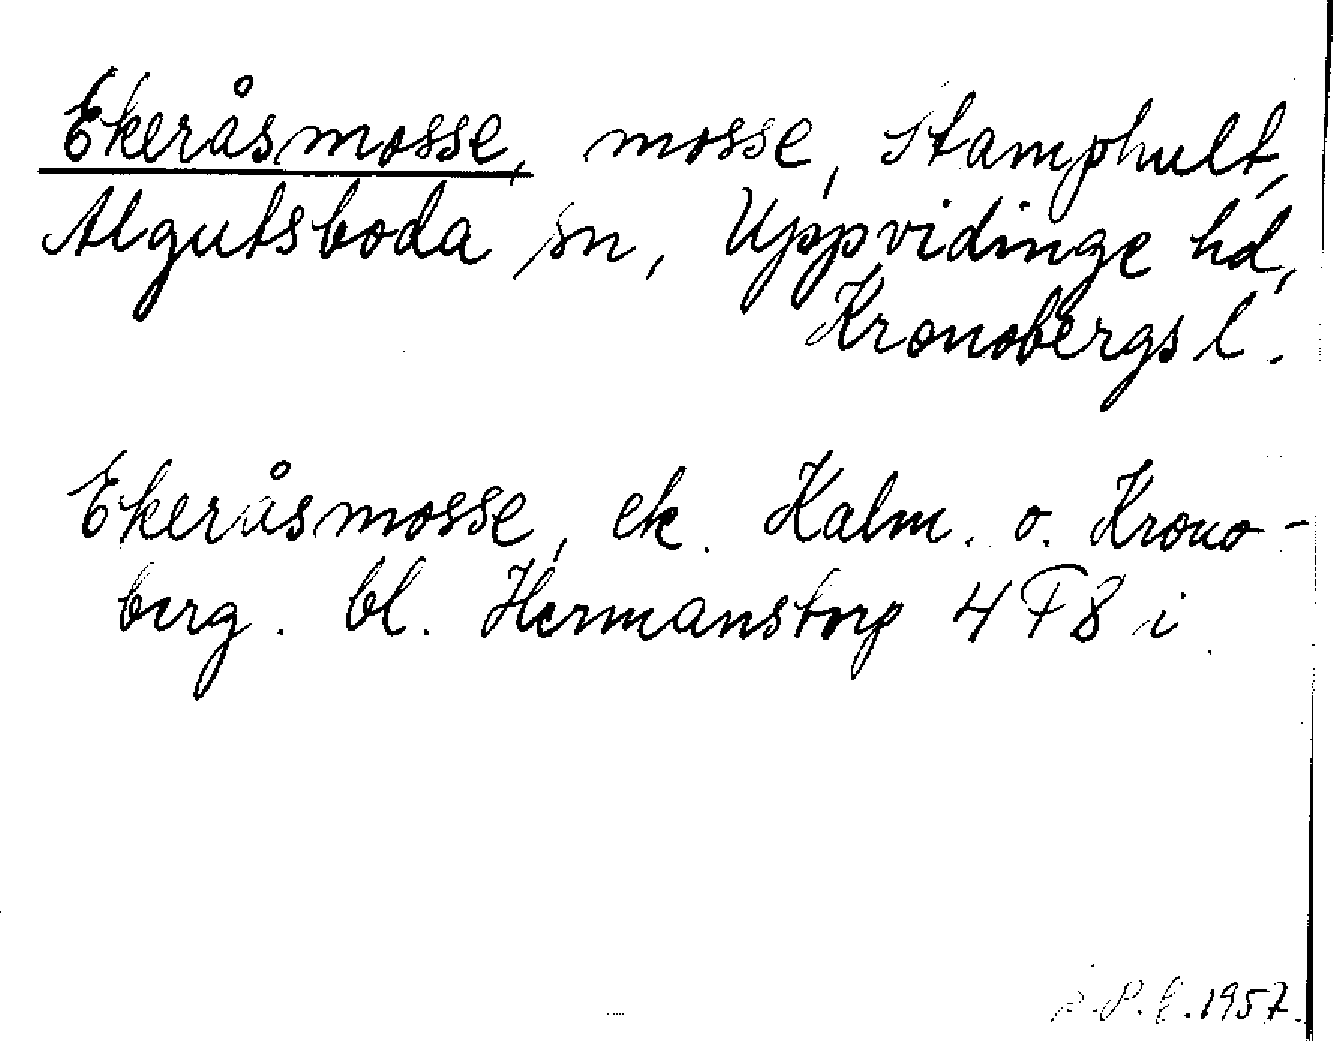 Ekeråsmosse, mosse, Stamphult,
Algutsboda sn, Uppvidinge hd,
Kronobergs l.
Ekeråsmosse, ek. Kalm. o. Krono-
berg. bl. Hermanstorp 4F8i
1957.